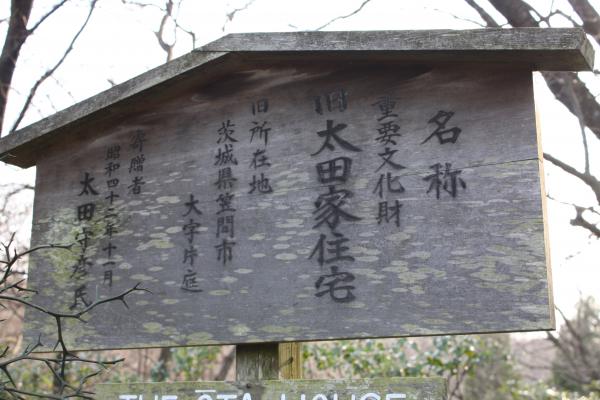 名称
重要文化財
旧太田家住宅
旧所在地
茨城県笠間市
大字片庭
寄贈者
昭和四十二年十一月
太田守彦氏
THE OTA HOUSE